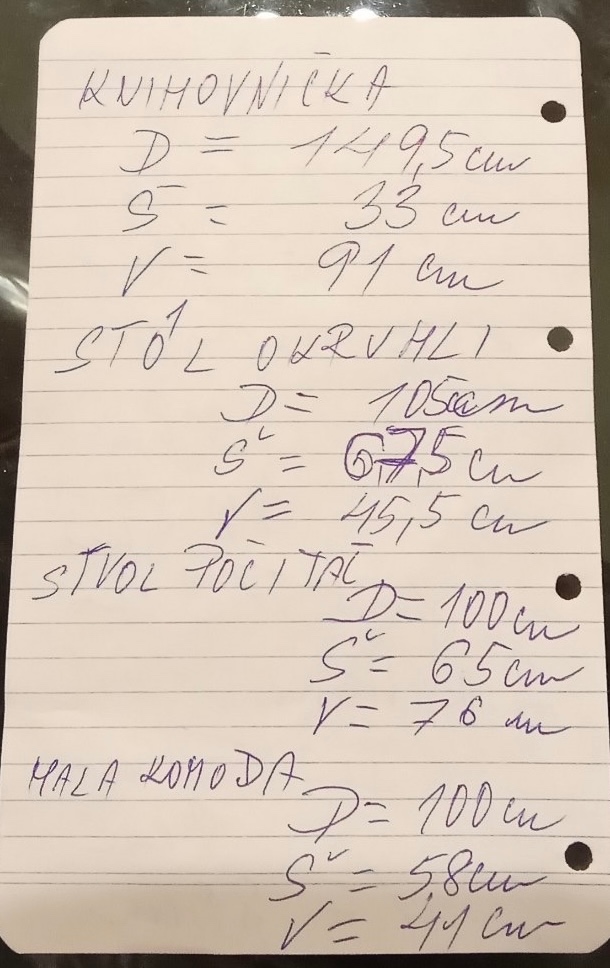 KNIHOVNIČKA
D = 149,5 cm
Š = 33 cm
V = 91 cm
STÔL OKRUHLI
D = 105 cm
Š = 67,5 cm
V = 45,5 cm
STVOL POČITAČ
D = 100 cm
Š = 65 cm
V = 76 cm
MALA KOMODA
D = 100 cm
Š = 58 cm
V = 41 cm